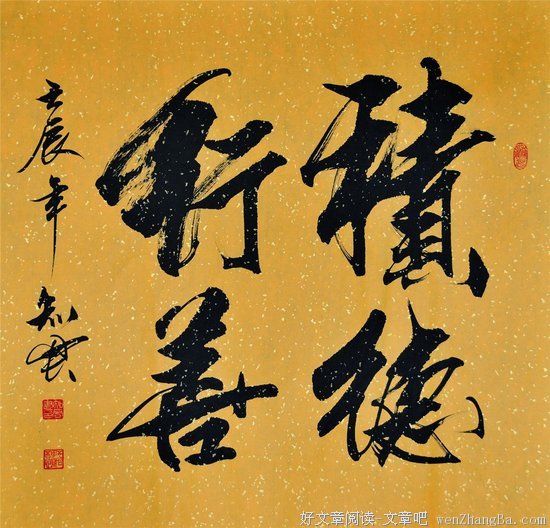 積德
行善
壬辰年知
好文章阅读-文章吧 wenZhangBa.com